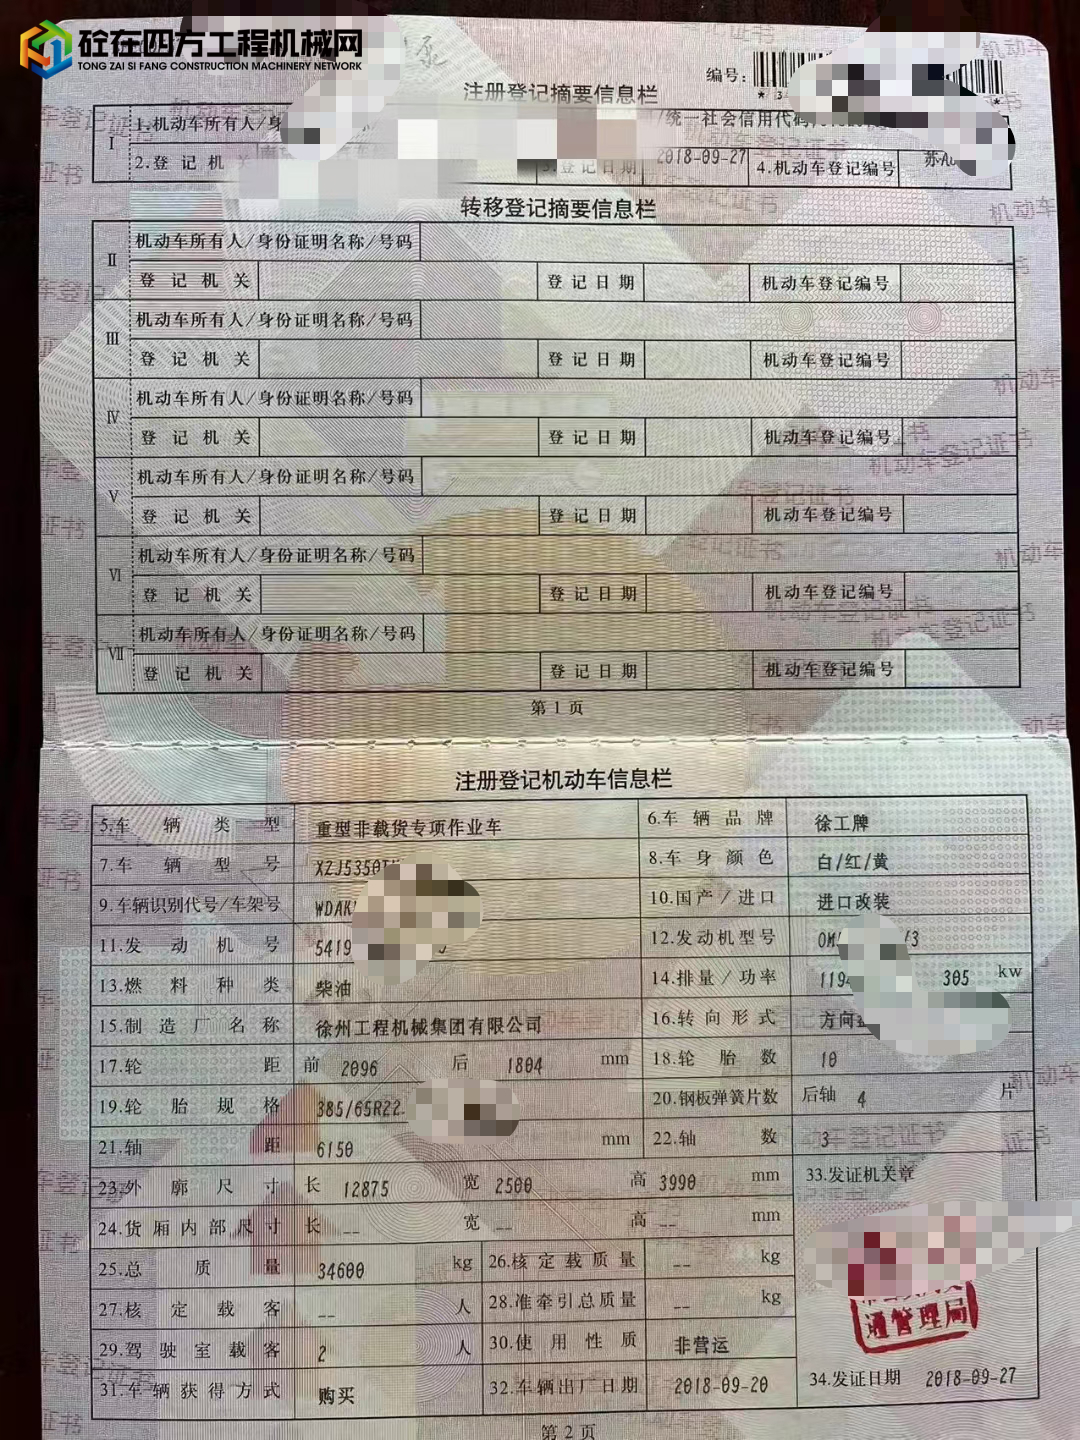 砼在四方工程机械网
TONG ZAI SI FANG CONSTRUCTION MACHINERY NETWORK
编号:
注册登记摘要信息栏
I 1.机动车所有人/身 /统一社会信用代码/
2.登记机关 3.登记日期 2018-09-27 4.机动车登记编号 苏A
转移登记摘要信息栏
II 机动车所有人/身份证明名称/号码
登记机关 登记日期 机动车登记编号
III 机动车所有人/身份证明名称/号码
登记机关 登记日期 机动车登记编号
IV 机动车所有人/身份证明名称/号码
登记机关 登记日期 机动车登记编号
V 机动车所有人/身份证明名称/号码
登记机关 登记日期 机动车登记编号
VI 机动车所有人/身份证明名称/号码
登记机关 登记日期 机动车登记编号
VII 机动车所有人/身份证明名称/号码
登记机关 登记日期 机动车登记编号
第1页
注册登记机动车信息栏
5.车辆类型 重型非载货专项作业车 6.车辆品牌 徐工牌
7.车辆型号 XZJ5350 8.车身颜色 白/红/黄
9.车辆识别代号/车架号 WDAK 10.国产/进口 进口改装
11.发动机号 5419 12.发动机型号 OM /3
13.燃料种类 柴油 14.排量/功率 119 305 kw
15.制造厂名称 徐州工程机械集团有限公司 16.转向形式 方向
17.轮距 前 2096 后 1804 mm 18.轮胎数 10
19.轮胎规格 385/65R22. 20.钢板弹簧片数 后轴 4 片
21.轴距 6150 mm 22.轴数 3
23.外廓尺寸 长 12875 宽 2500 高 3990 mm 33.发证机关章
24.货厢内部尺寸 长 -- 宽 -- 高 -- mm
25.总质量 34600 kg 26.核定载质量 -- kg
27.核定载客 -- 人 28.准牵引总质量 -- kg
通管理局
29.驾驶室载客 2 人 30.使用性质 非营运
31.车辆获得方式 购买 32.车辆出厂日期 2018-09-20 34.发证日期 2018-09-27
第2页